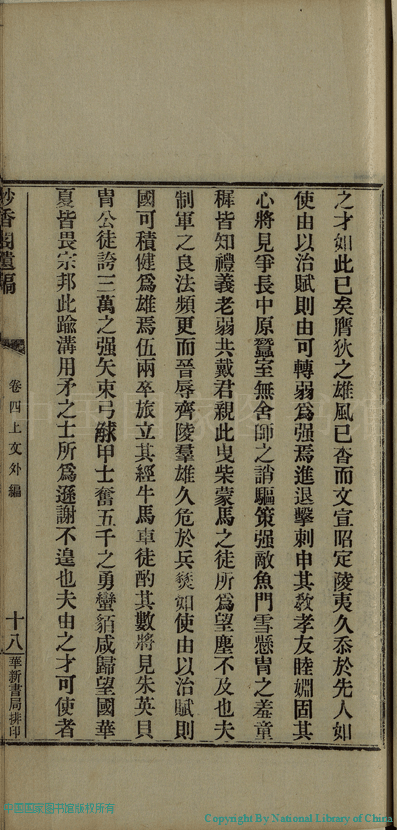 之才如此已矣膺狄之雄風已杳而文宣昭定陵夷久忝於先人如
使由以治賦則由可轉弱爲强焉進退擊刺申其教孝友睦婣固其
心將見爭長中原蠶室無舍師之誚驅策强敵魚門雪懸冑之羞童
穉皆知禮義老弱共戴君親此曳柴蒙馬之徒所爲望塵不及也夫
制軍之良法頻更而晉辱齊陵羣雄久危於兵燹如使由以治賦則
國可積健爲雄焉伍兩卒旅立其經牛馬車徒酌其數將見朱英貝
冑公徒誇三萬之强矢束弓觩甲士奮五千之勇蠻貊咸歸望國華
夏皆畏宗邦此踰溝用矛之士所爲遜謝不遑也夫由之才可使者
香閣遺編
卷四上文外編
十八
華新書局排印
中国国家图书馆版权所有
Copyright By National Library of China